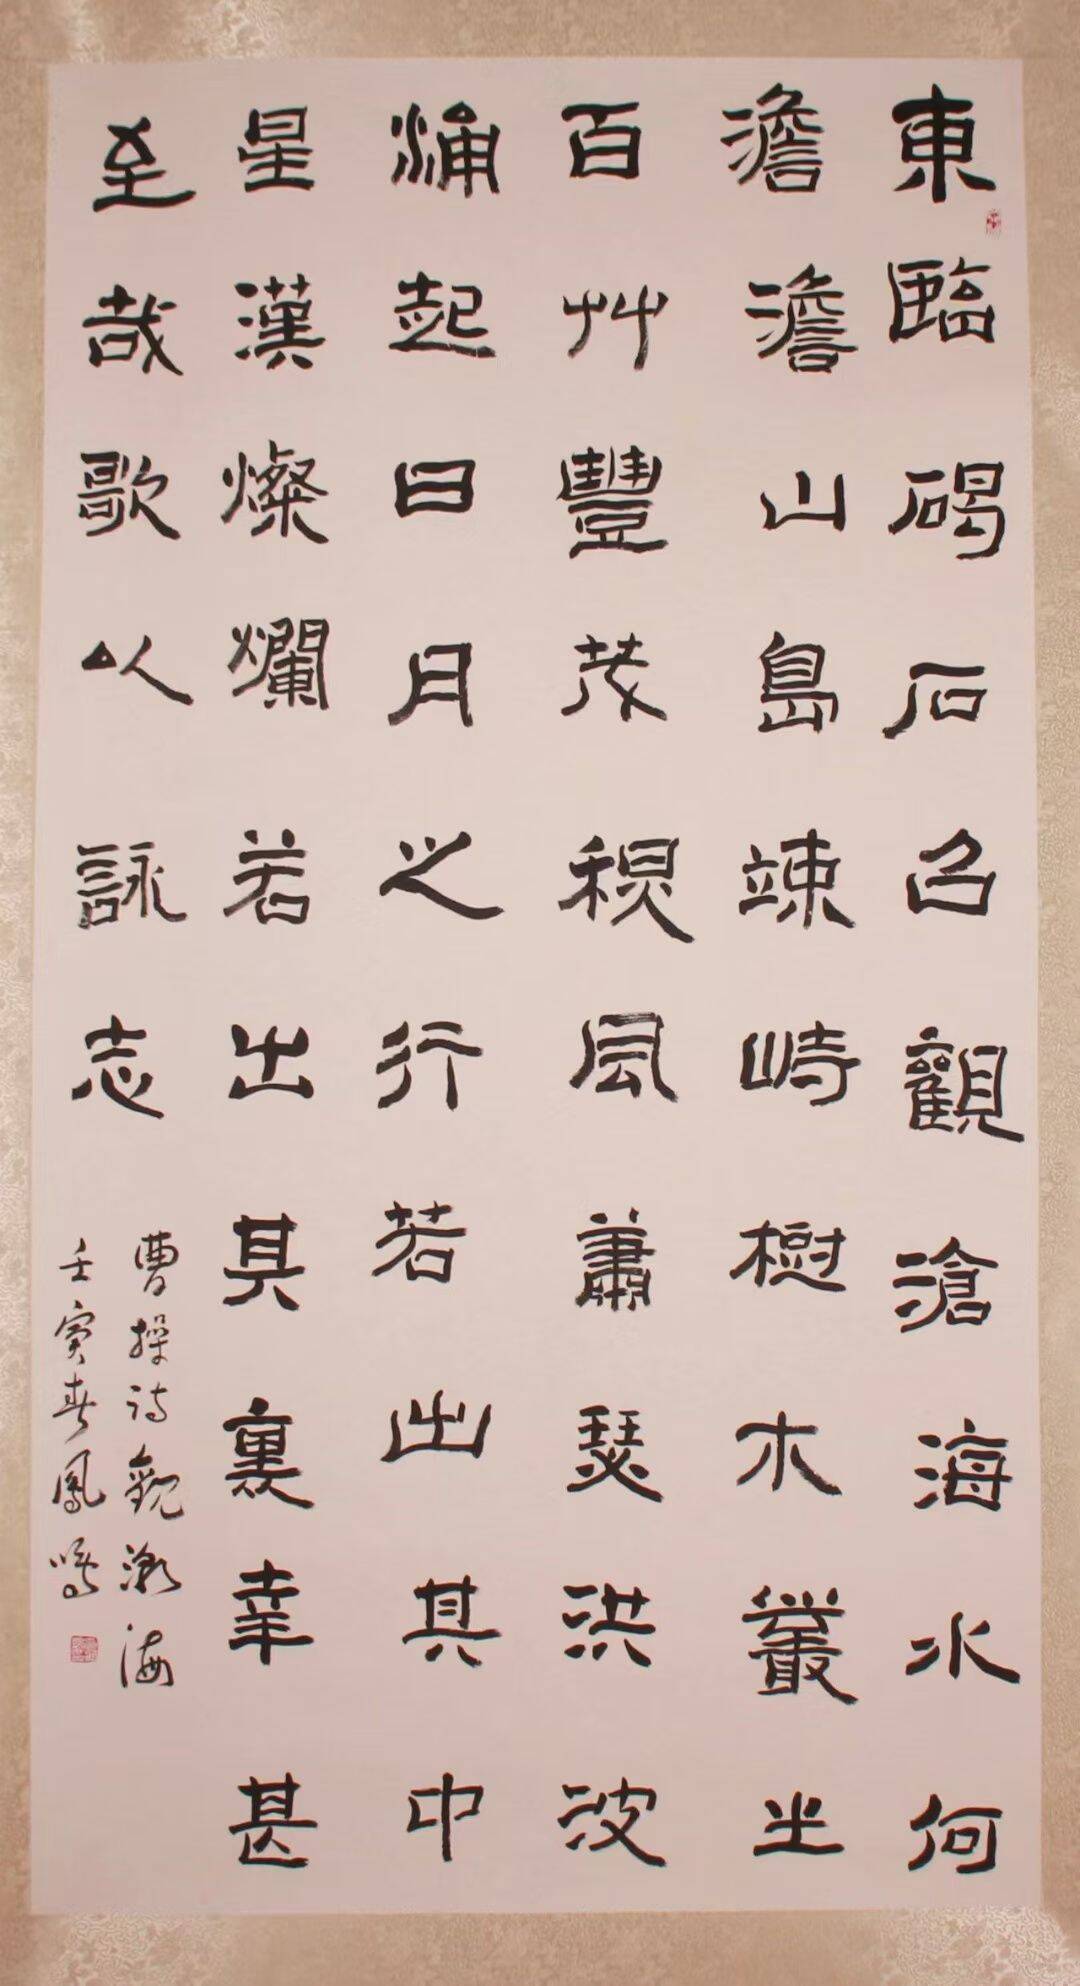 東臨碣石以觀滄海水何
澹澹山島竦峙樹木叢生
百艸豐茂秋風蕭瑟洪波
涌起日月之行若出其中
星漢燦爛若出其裏幸甚
至哉歌以詠志
曹操詩觀滄海
壬寅春鳳鳴